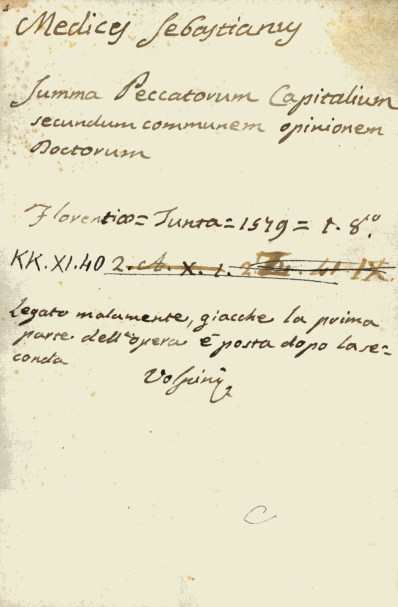 Medices Sebastianus
Summa Peccatorum Capitalium
secundum communem opinionem
Doctorum
Florentiæ = Junta = 1579 = t. 8.º
KK.XI.40 2. A. X. 1.
Legato malamente, giacche la prima
parte dell'opera è posta dopo la se=
conda
Volpini
C